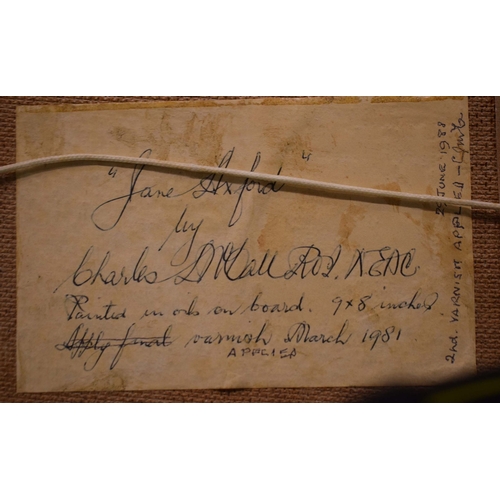 "Jane Axford"
by
Charles McCall ROI, NEAC.
Painted in oils on board. 9 x 8 inches
Apply final varnish March 1981
APPLIED
2nd. VARNISH APPLIED -
JUNE 1988